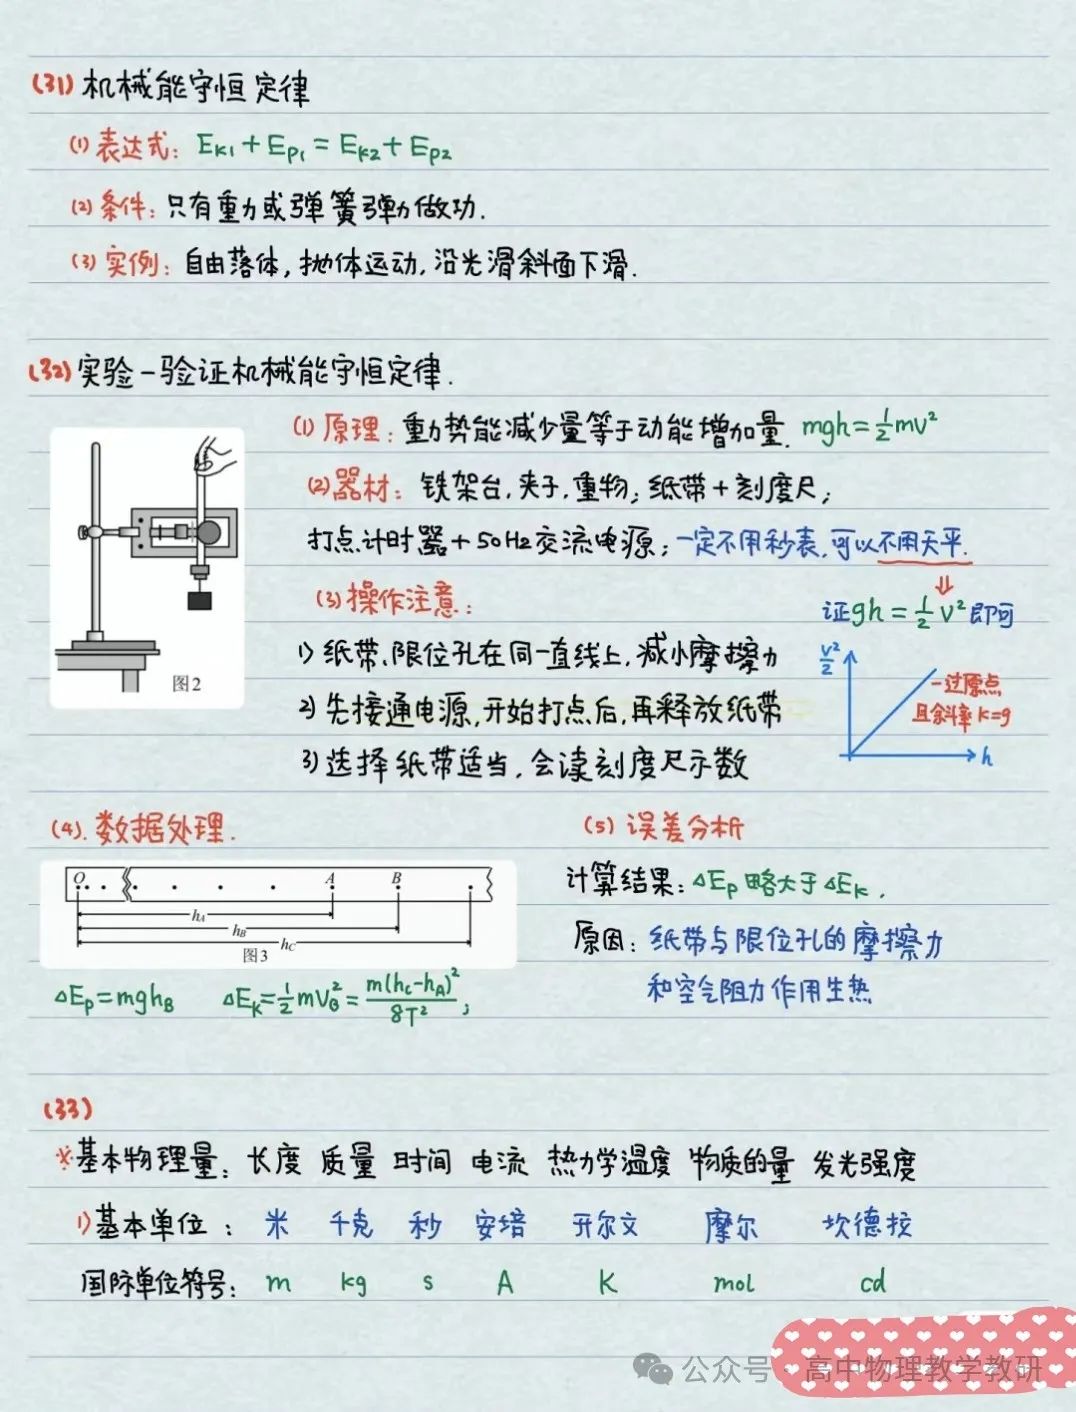 (31) 机械能守恒定律
(1) 表达式: Eₖ₁+Eₚ₁=Eₖ₂+Eₚ₂
(2) 条件: 只有重力或弹簧弹力做功.
(3) 实例: 自由落体, 抛体运动, 沿光滑斜面下滑.
(32) 实验-验证机械能守恒定律.
(1) 原理: 重力势能减少量等于动能增加量. mgh=½mv²
(2) 器材: 铁架台, 夹子, 重物; 纸带+刻度尺;
打点计时器+50Hz交流电源; 一定不用秒表, 可以不用天平.
⇓
证gh=½v²即可
(3) 操作注意:
1) 纸带、限位孔在同一直线上, 减小摩擦力
2) 先接通电源, 开始打点后, 再释放纸带
3) 选择纸带适当, 会读刻度尺示数
图2
v²/2
h
-过原点
且斜率k=g
(4). 数据处理.
O A B
hA
hB
hC
图3
ΔEₚ=mghB ΔEₖ=½mvB²=m(hC-hA)²/8T²;
(5) 误差分析
计算结果: ΔEₚ略大于ΔEₖ.
原因: 纸带与限位孔的摩擦力
和空气阻力作用生热
(33)
※基本物理量: 长度 质量 时间 电流 热力学温度 物质的量 发光强度
1) 基本单位: 米 千克 秒 安培 开尔文 摩尔 坎德拉
国际单位符号: m kg s A K mol cd
公众号 高中物理教学教研